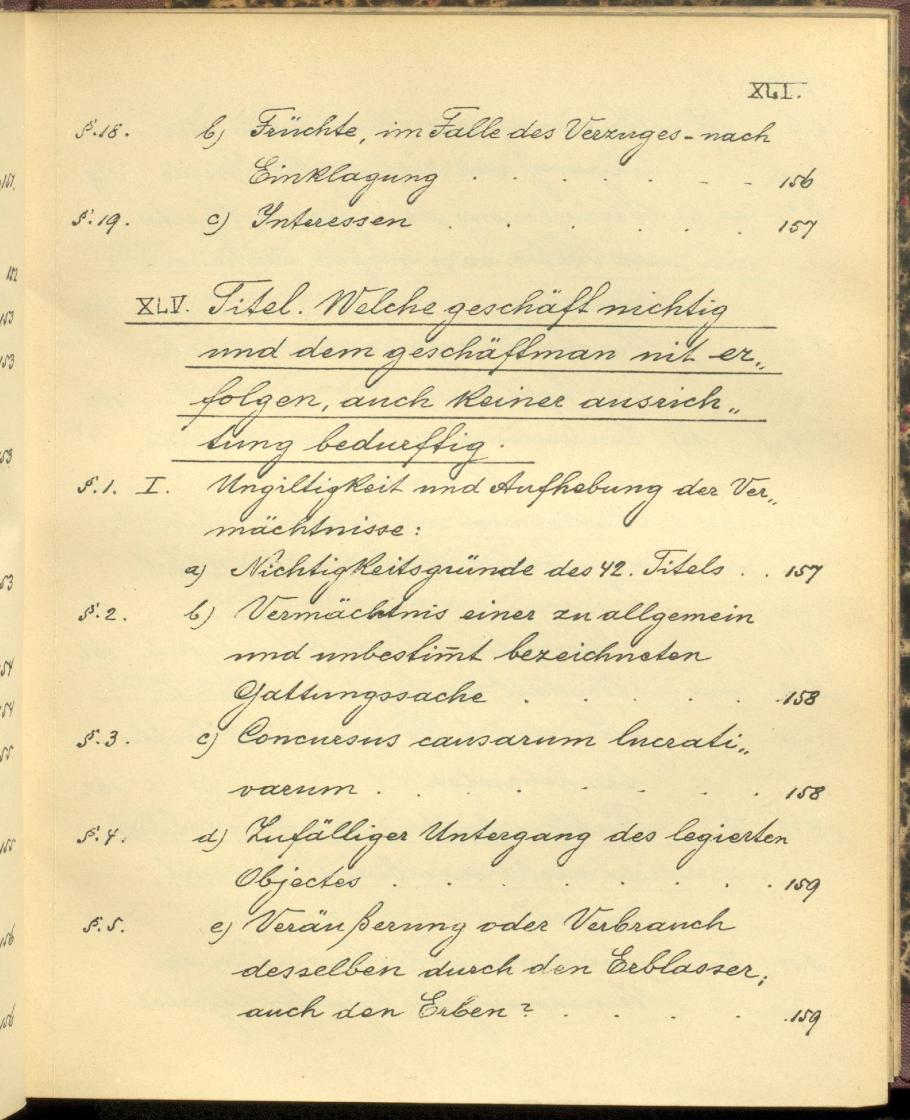 XLI.
§.18. b) Früchte, im Falle des Verzuges - nach
Einklagung . . . . - - 156
§.19. c) Interessen . . . . . . 157
XLV. Titel. Welche geschäft nichtig
und dem geschäftman nit er„
folgen, auch keiner ausrich„
tung bedurftig.
§.1. I. Ungiltigkeit und Aufhebung der Ver„
mächtnisse:
a) Nichtigkeitsgründe des 42. Titels . . 157
§.2. b) Vermächtnis einer zu allgemein
und unbestim̅t bezeichneten
Gattungssache . . . . . . 158
§.3. c) Concursus causarum lucrati„
varum . . . . . . . 158
§.4. d) Zufälliger Untergang des legierten
Objectes . . . . . . . . 159
§.5. e) Veräußerung oder Verbrauch
desselben durch den Erblasser;
auch den Erben? . . . . . 159
151.
152
153
153
153
153
154
154
155
155
156
156